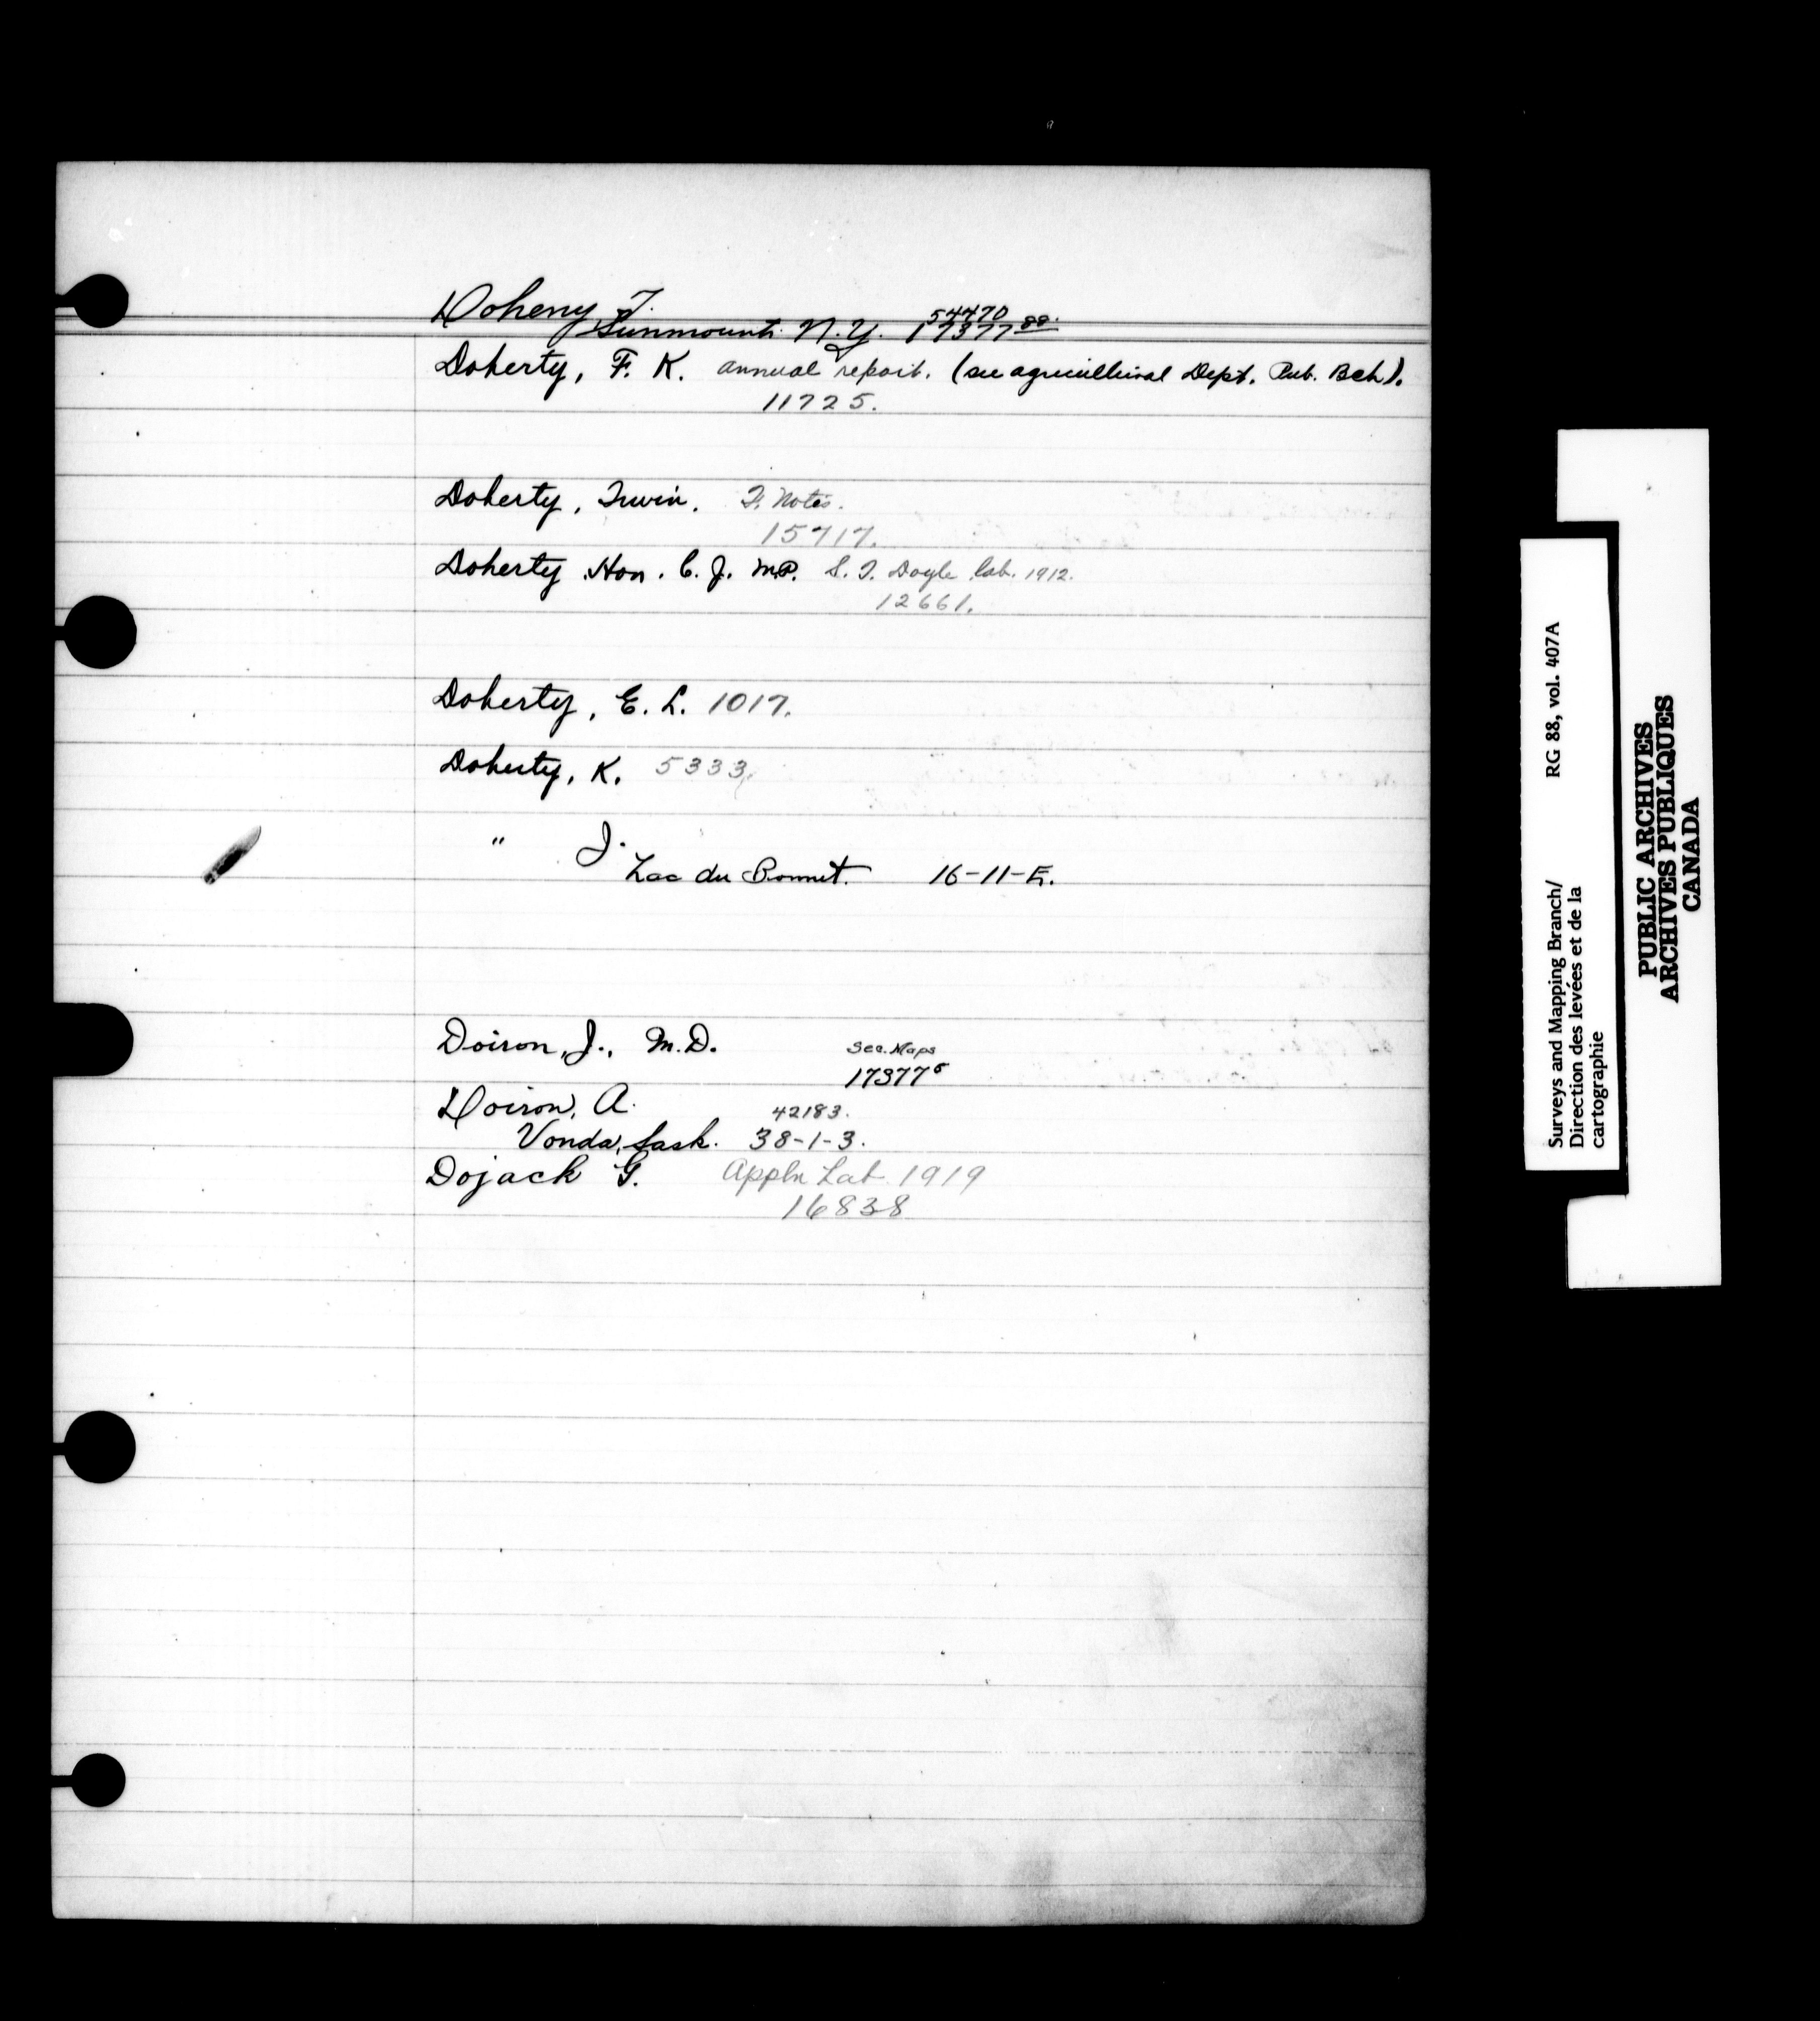 Doheny, T.
Sunmount. N.Y. 54470 17377 88.
Doherty, F. K. annual report. (see agricultural Dept. Pub. Bch).
11725.
Doherty, Irwin. F. Notes.
15717.
Doherty Hon. C. J. M.P. S. T. Doyle lab. 1912.
12661.
Doherty, E. L. 1017.
Doherty, K. 5333
" J.
Lac du Bonnet. 16-11-E.
Doiron, J., M.D. Sec. Maps
17377
Doiron, A. 42183.
Vonda, Sask. 38-1-3.
Dojack G. Appln Lab 1919
16838
Surveys and Mapping Branch/ RG 88, vol. 407A
Direction des levées et de la
cartographie
PUBLIC ARCHIVES
ARCHIVES PUBLIQUES
CANADA